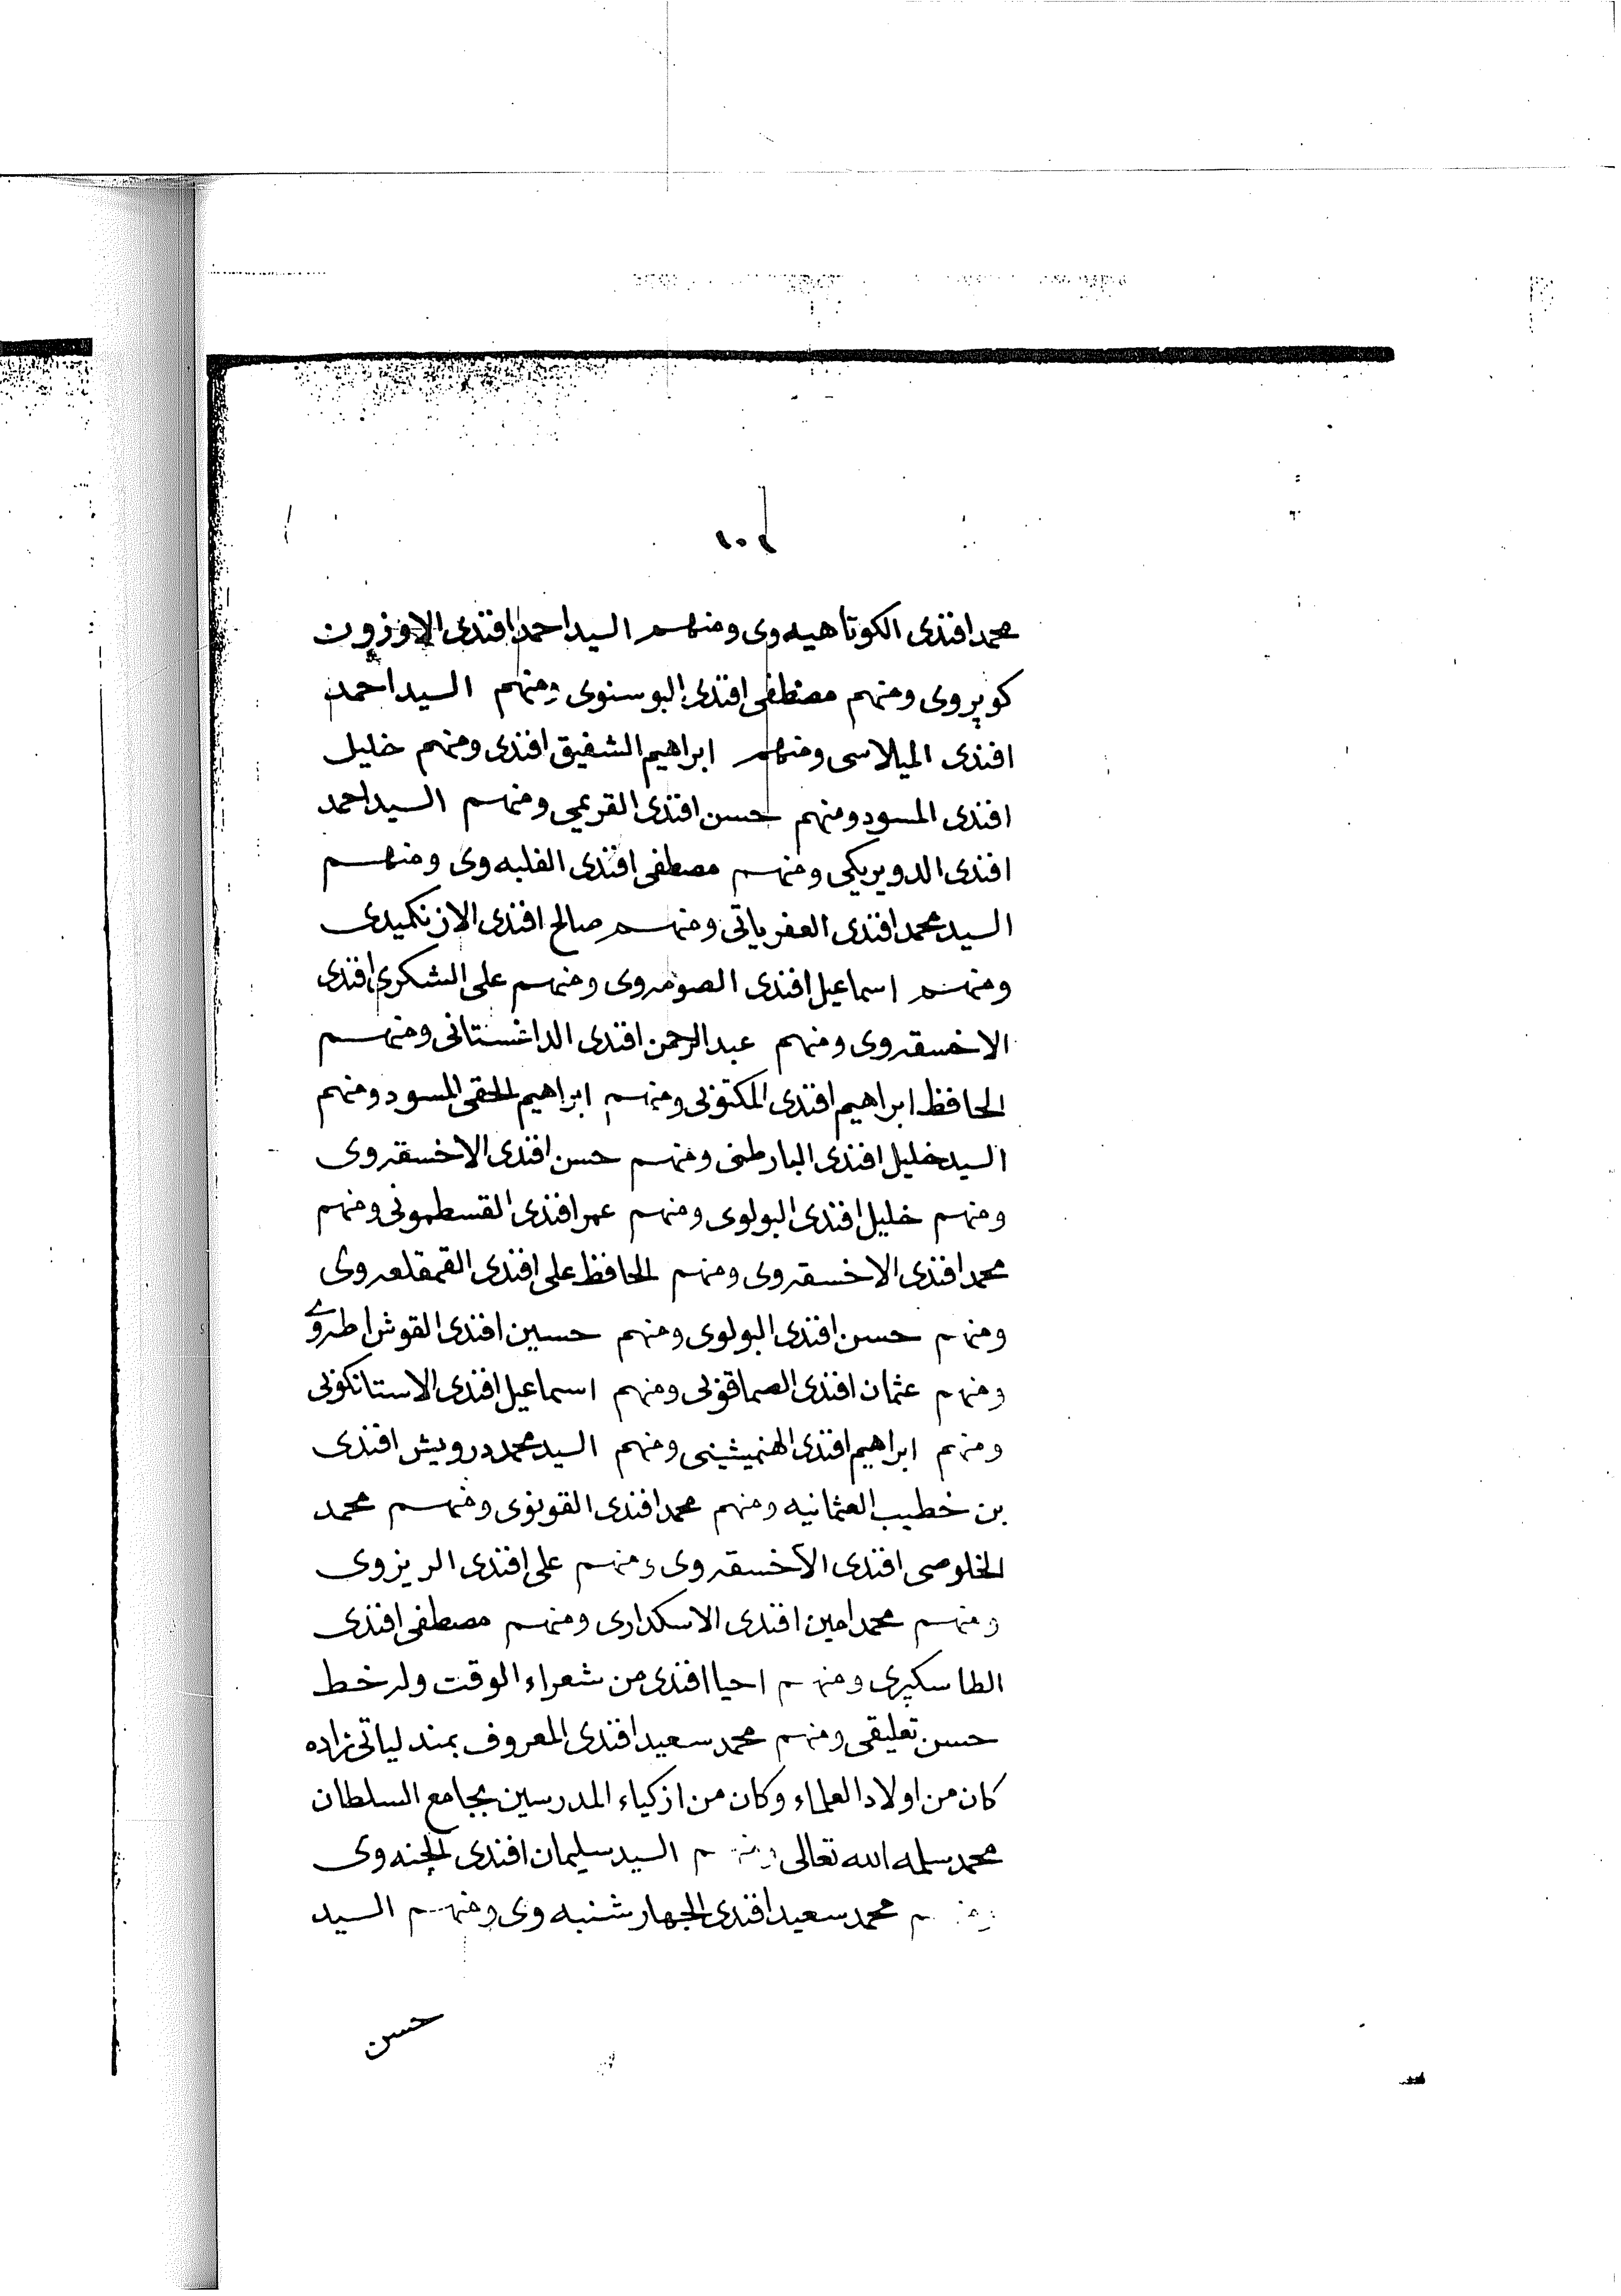 محمد افندى الكوتاهيه وى ومنهم السيد احمد افندى الاوزون
كوپروى ومنهم مصطفى افندى البوسنوى ومنهم السيد احمد
افندى الميلاسى ومنهم ابراهيم الشفيق افندى ومنهم خليل
افندى المسود ومنهم حسن افندى القريمى ومنهم السيد احمد
افندى الدويريكى ومنهم مصطفى افندى الفلبه وى ومنهم
السيد محمد افندى العفرياتى ومنهم صالح افندى الازنكميدى
ومنهم اسماعيل افندى الصومه وى ومنهم على الشكرى افندى
الاخسقه وى ومنهم عبد الرحمن افندى الداغستانى ومنهم
الحافظ ابراهيم افندى المكتوبى ومنهم ابراهيم الحقى المسود ومنهم
السيد خليل افندى البارطنى ومنهم حسن افندى الاخسقه وى
ومنهم خليل افندى البولوى ومنهم عمر افندى القسطمونى ومنهم
محمد افندى الاخسقه وى ومنهم الحافظ على افندى القمقلعه وى
ومنهم حسن افندى البولوى ومنهم حسين افندى القوش اطه وى
ومنهم عثمان افندى الصماقوبى ومنهم اسماعيل افندى الاستانكوبى
ومنهم ابراهيم افندى الهنميشينى ومنهم السيد محمد درويش افندى
بن خطيب العثمانيه ومنهم محمد افندى القونوى ومنهم محمد
الخلوصى افندى الاخسقه وى ومنهم على افندى الريزوى
ومنهم محمد امين افندى الاسكدارى ومنهم مصطفى افندى
الطاسكپرى ومنهم احيا افندى من شعراء الوقت وله خط
حسن تعليقى ومنهم محمد سعيد افندى المعروف بمندلياتى زاده
كان من اولاد العلماء وكان من ازكياء المدرسين بجامع السلطان
محمد سلمه الله تعالى ومنهم السيد سليمان افندى الجنه وى
ومنهم محمد سعيد افندى الجهارشنبه وى ومنهم السيد
حسن